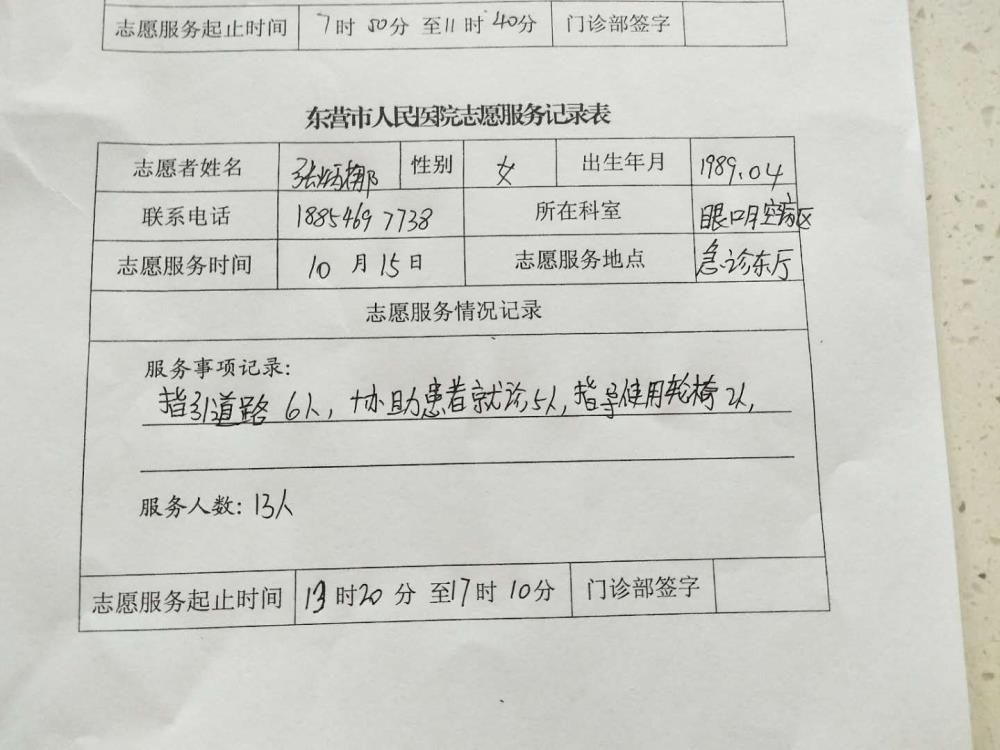 志愿服务起止时间 7时50分 至11时40分 门诊部签字
东营市人民医院志愿服务记录表
志愿者姓名 张 娜 性别 女 出生年月 1989.04
联系电话 18854697738 所在科室 眼口腔病区
志愿服务时间 10月15日 志愿服务地点 急诊东厅
志愿服务情况记录
服务事项记录:
指引道路6人,协助患者就诊5人,指导使用轮椅2人,
服务人数:13人
志愿服务起止时间 13时20分 至17时10分 门诊部签字